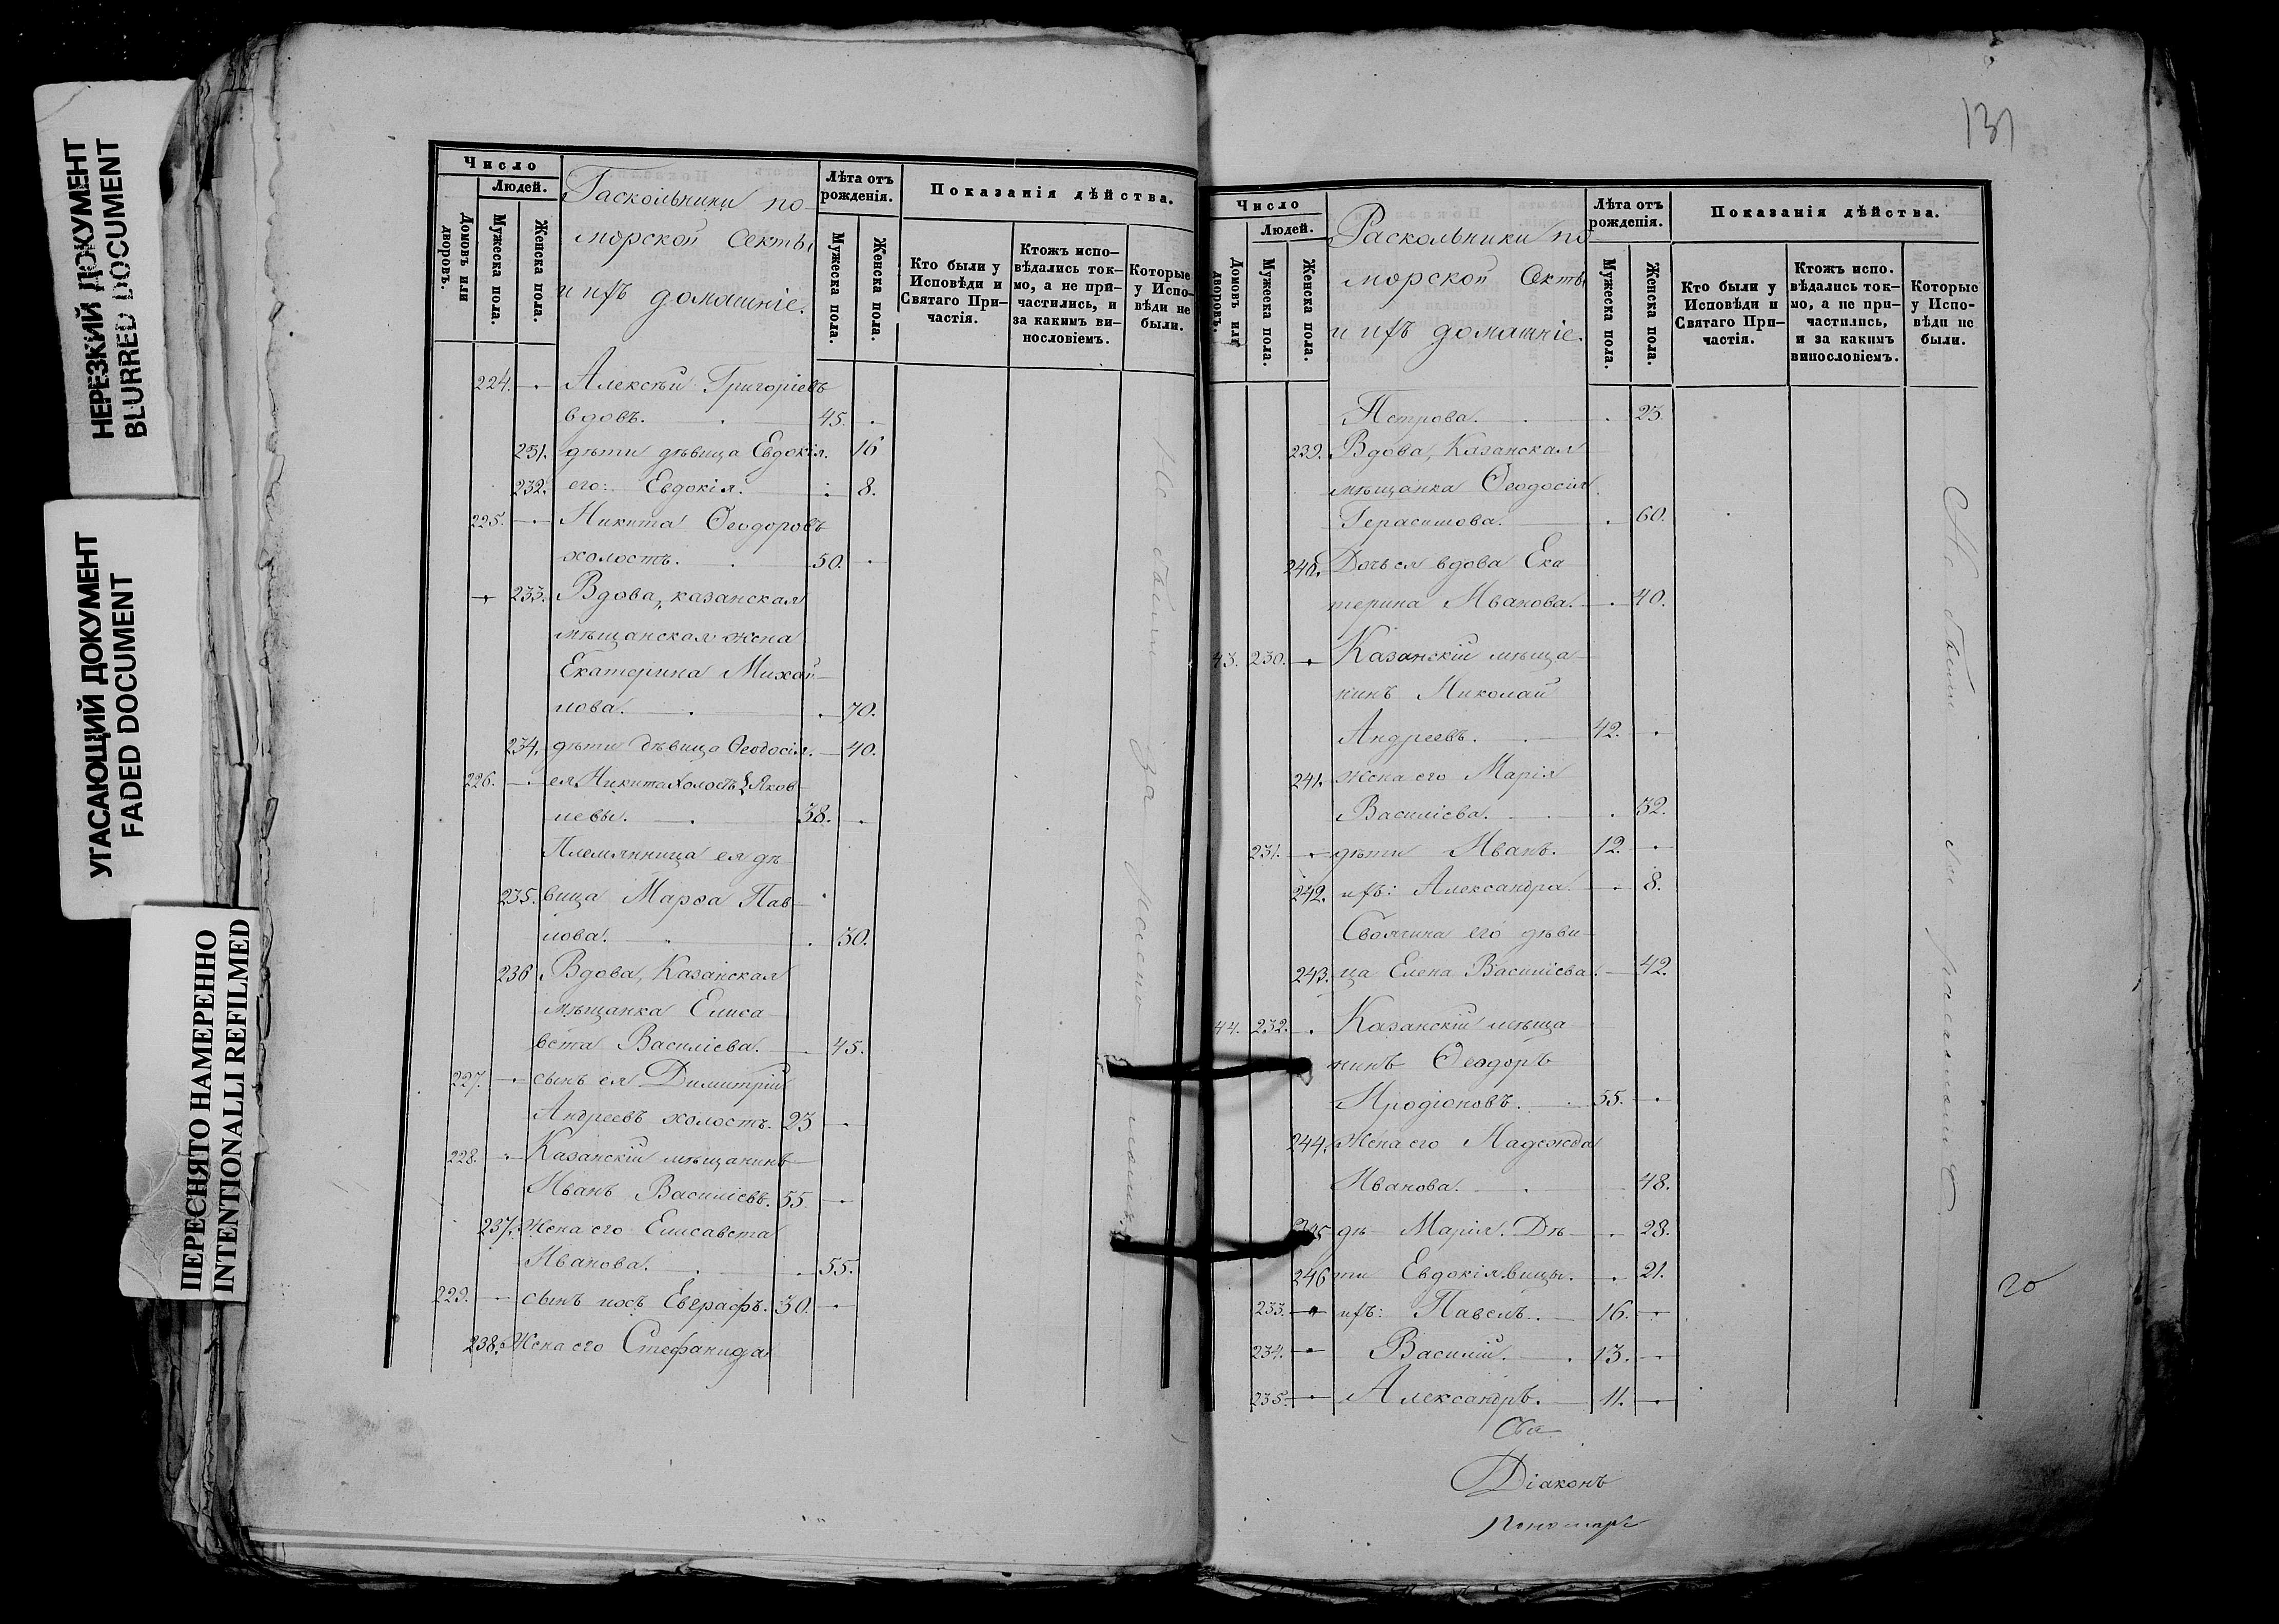 НЕРЕЗКИЙ ДОКУМЕНТ
BLURRED DOCUMENT
УГАСАЮЩИЙ ДОКУМЕНТ
FADED DOCUMENT
ПЕРЕСНЯТО НАМЕРЕННО
INTENTIONALLI REFILMED
Число
Людей.
Домовъ или дворовъ.
Мужеска пола.
Женска пола.
Раскольники по-
морской секты
и ихъ домашніе.
Лѣта отъ рожденія.
Мужеска пола.
Женска пола.
Показанія дѣйства.
Кто были у Исповѣди и Святаго При-частія.
Ктожъ испо-вѣдались ток-мо, а не при-частились, и за какимъ ви-нословіемъ.
Которые у Испо-вѣди не были.
224. Алексѣй Григоріевъ
вдовъ. 45.
231. дѣти дѣвица Евдокія. 16
232. его: Евдокія. 8.
225. Никита Ѳеодоровъ
холостъ. 50.
233. Вдова, казанская
мѣщанская жена
Екатерина Михай-
лова. 70.
234. дѣти дѣвица Ѳеодосія. 40.
226. ея Никита холостъ Яков-
левы. 38.
Племянница ея дѣ-
235. вица Марѳа Пав-
лова. 30.
236 Вдова, Казанская
мѣщанка Елиса-
вета Василіева. 45.
227. сынъ ея Димитрій
Андреевъ холостъ. 23
228. Казанскій мѣщанинъ
Иванъ Василіевъ. 55
237. Жена его Елисавета
Иванова. 55.
229. сынъ ихъ Евграфъ. 30.
238. Жена его Стефанида
131
Число
Людей.
Домовъ или дворовъ.
Мужеска пола.
Женска пола.
Раскольники по
морской секты
и ихъ домашніе.
Лѣта отъ рожденія.
Мужеска пола.
Женска пола.
Показанія дѣйства.
Кто были у Исповѣди и Святаго При-частія.
Ктожъ испо-вѣдались ток-мо, а не при-частились, и за какимъ винословіемъ.
Которые у Испо-вѣди не были.
Петрова. 25.
239. Вдова, Казанская
мѣщанка Ѳеодосія
Герасимова. 60.
240. Дочь ея вдова Ека
терина Иванова. 40.
43. 230. Казанскій мѣща-
нинъ Николай
Андреевъ. 42.
241. Жена его Марія
Василіева. 32.
231. дѣти Иванъ. 12.
242. ихъ: Александра. 8.
Своячина его дѣви-
243. ца Елена Василіева. 42.
44. 232. Казанскій мѣща
нинъ Ѳеодоръ
Иродіоновъ. 55.
244. Жена его Надежда
Иванова. 48.
245 дѣ- Марія. Дѣ- 28.
246 ти Евдокія. вицы. 21.
233. ихъ: Павелъ. 16.
234. Василій. 13.
235. Александръ. 11.
Діаконъ
Пономарь
Не были за
Не были
20